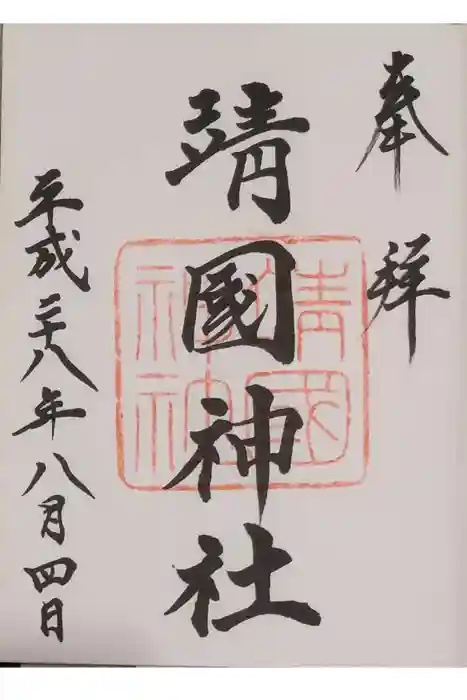 奉拜
靖國神社
靖國
神社
平成二十八年八月四日